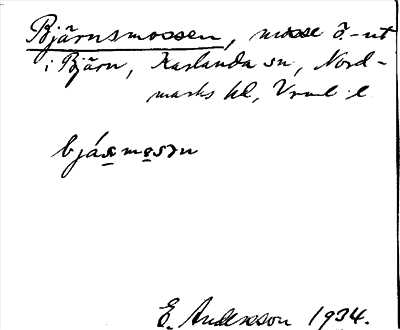 Bjärnsmossen, mosse ä.-ut
i Bjärn, Karlanda sn, Nord-
marks hd, Vrml. l.
bjásmosən
E. Andersson 1934.